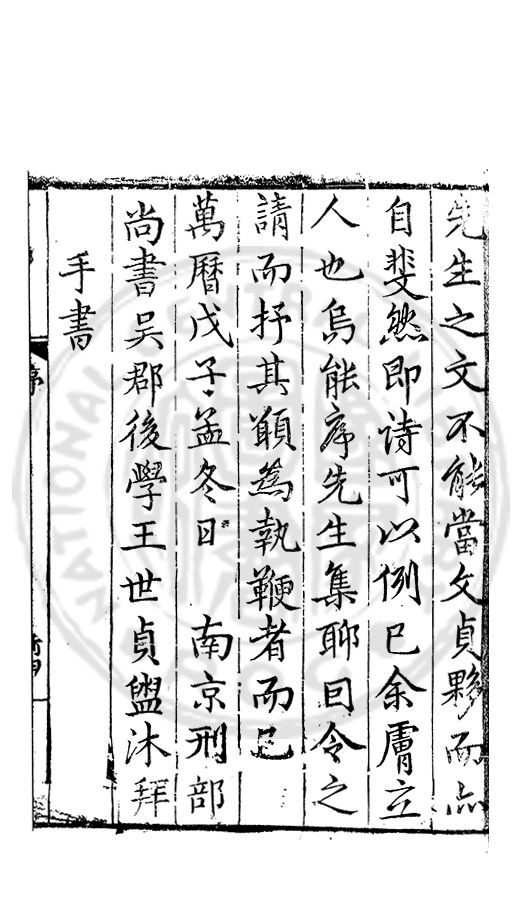 先生之文不能當文貞夥而亦
自斐然即詩可以例已余膚立
人也烏能序先生集聊囙令之
請而抒其願為執鞭者而已
萬曆戊子孟冬日　南京刑部
尚書吳郡後學王世貞盥沐拜
手書
NATIONAL